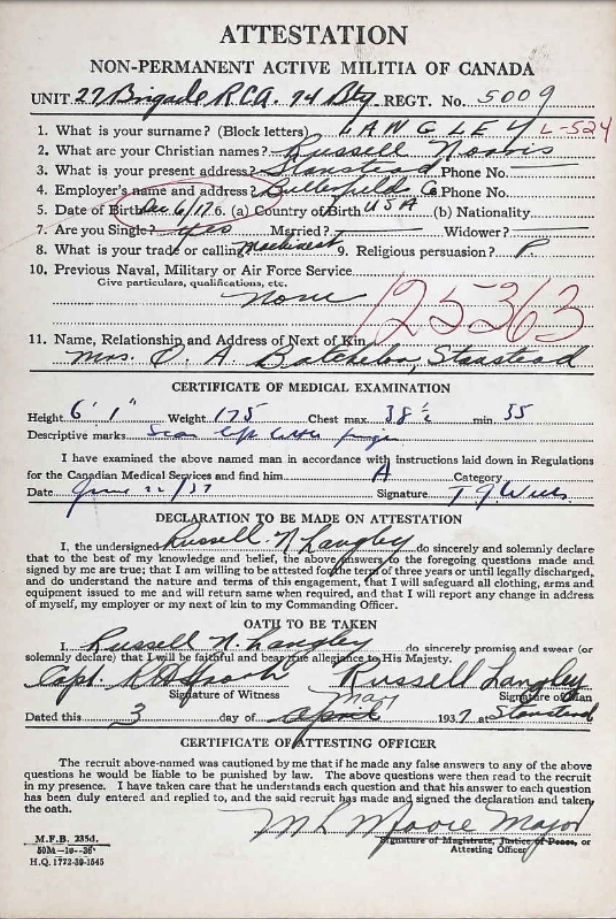 ATTESTATION
NON-PERMANENT ACTIVE MILITIA OF CANADA
UNIT 27 Brigade R.C.A. 74 Bty. REGT. No. 5009
1. What is your surname? (Block letters) LANGLEY L-524
2. What are your Christian names? Russell Norris
3. What is your present address? Stanstead Phone No.
4. Employer's name and address? Butterfield Co Phone No.
5. Date of Birth Dec 6/17 6. (a) Country of Birth USA (b) Nationality
7. Are you Single? Yes Married? Widower?
8. What is your trade or calling? Machinest 9. Religious persuasion? P.
10. Previous Naval, Military or Air Force Service
Give particulars, qualifications, etc.
None
125363
11. Name, Relationship and Address of Next of Kin
Mrs. O. A. Batchelor, Stanstead
CERTIFICATE OF MEDICAL EXAMINATION
Height 6' 1" Weight 175 Chest max. 38 ½ min. 35
Descriptive marks Scar left finger
I have examined the above named man in accordance with instructions laid down in Regulations
for the Canadian Medical Services and find him A Category
Date June /37 Signature
DECLARATION TO BE MADE ON ATTESTATION
I, the undersigned Russell N Langley do sincerely and solemnly declare
that to the best of my knowledge and belief, the above answers to the foregoing questions made and
signed by me are true; that I am willing to be attested for the term of three years or until legally discharged,
and do understand the nature and terms of this engagement, that I will safeguard all clothing, arms and
equipment issued to me and will return same when required, and that I will report any change in address
of myself, my employer or my next of kin to my Commanding Officer.
OATH TO BE TAKEN
I, Russell N. Langley do sincerely promise and swear (or
solemnly declare) that I will be faithful and bear true allegiance to His Majesty.
Capt. Russell Langley
Signature of Witness Signature of Man
May
Dated this 3 day of April 1937 at Stanstead
CERTIFICATE OF ATTESTING OFFICER
The recruit above-named was cautioned by me that if he made any false answers to any of the above
questions he would be liable to be punished by law. The above questions were then read to the recruit
in my presence. I have taken care that he understands each question and that his answer to each question
has been duly entered and replied to, and the said recruit has made and signed the declaration and taken
the oath.
Moore Major
Signature of Magistrate, Justice of Peace, or
Attesting Officer
M.F.B. 235d.
50M—10--36
H.Q. 1772-39-1545